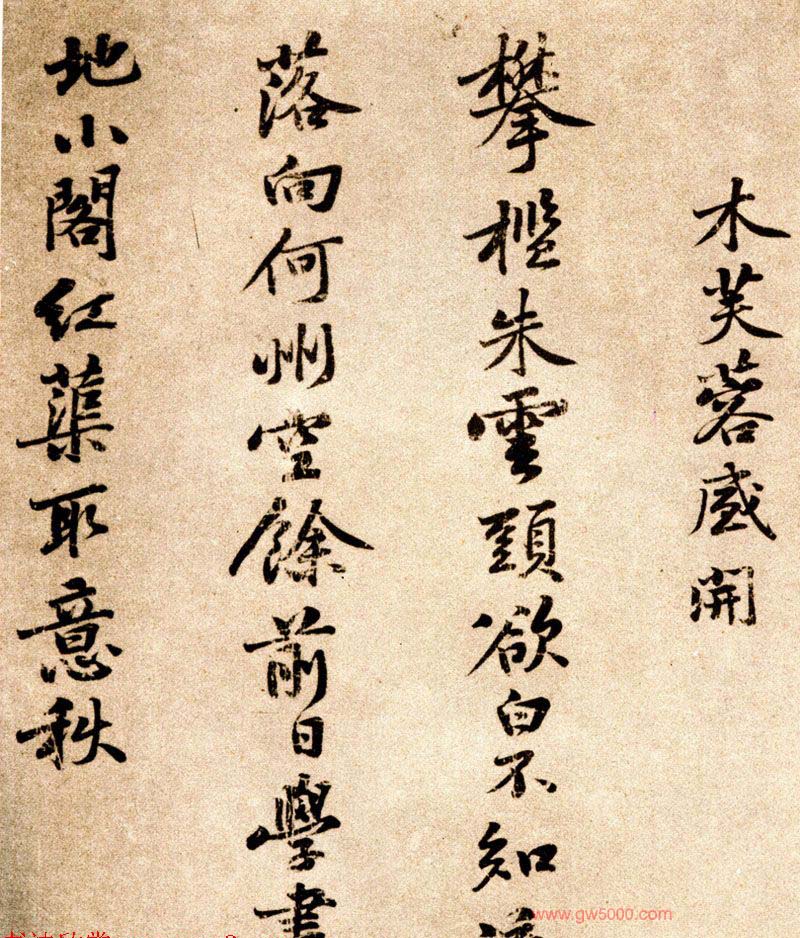 木芙蓉盛開
攀檻朱雲頭欲白不知
落向何州空餘前日學書
地小閣紅蕖取意秋
www.gw5000.com